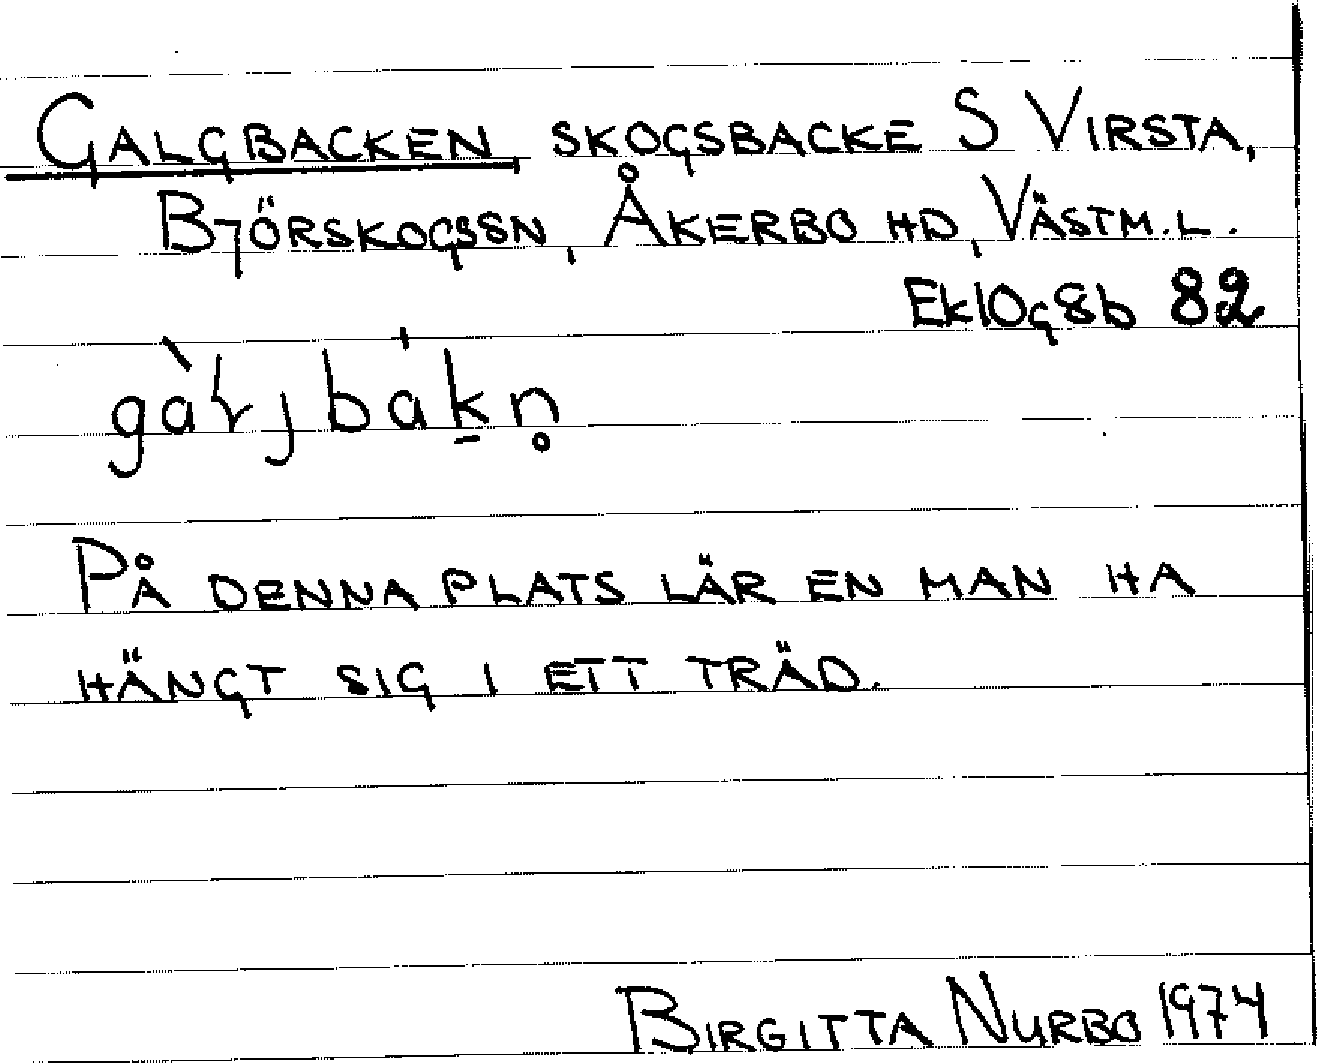 GALGBACKEN, SKOGSBACKE S VIRSTA,
BJÖRSKOGSSN, ÅKERBO HD, VÄSTM.L.
Ek10g8b 82
gàƚjbákn̥
PÅ DENNA PLATS LÄR EN MAN HA
HÄNGT SIG I ETT TRÄD.
BIRGITTA NURBO 1974